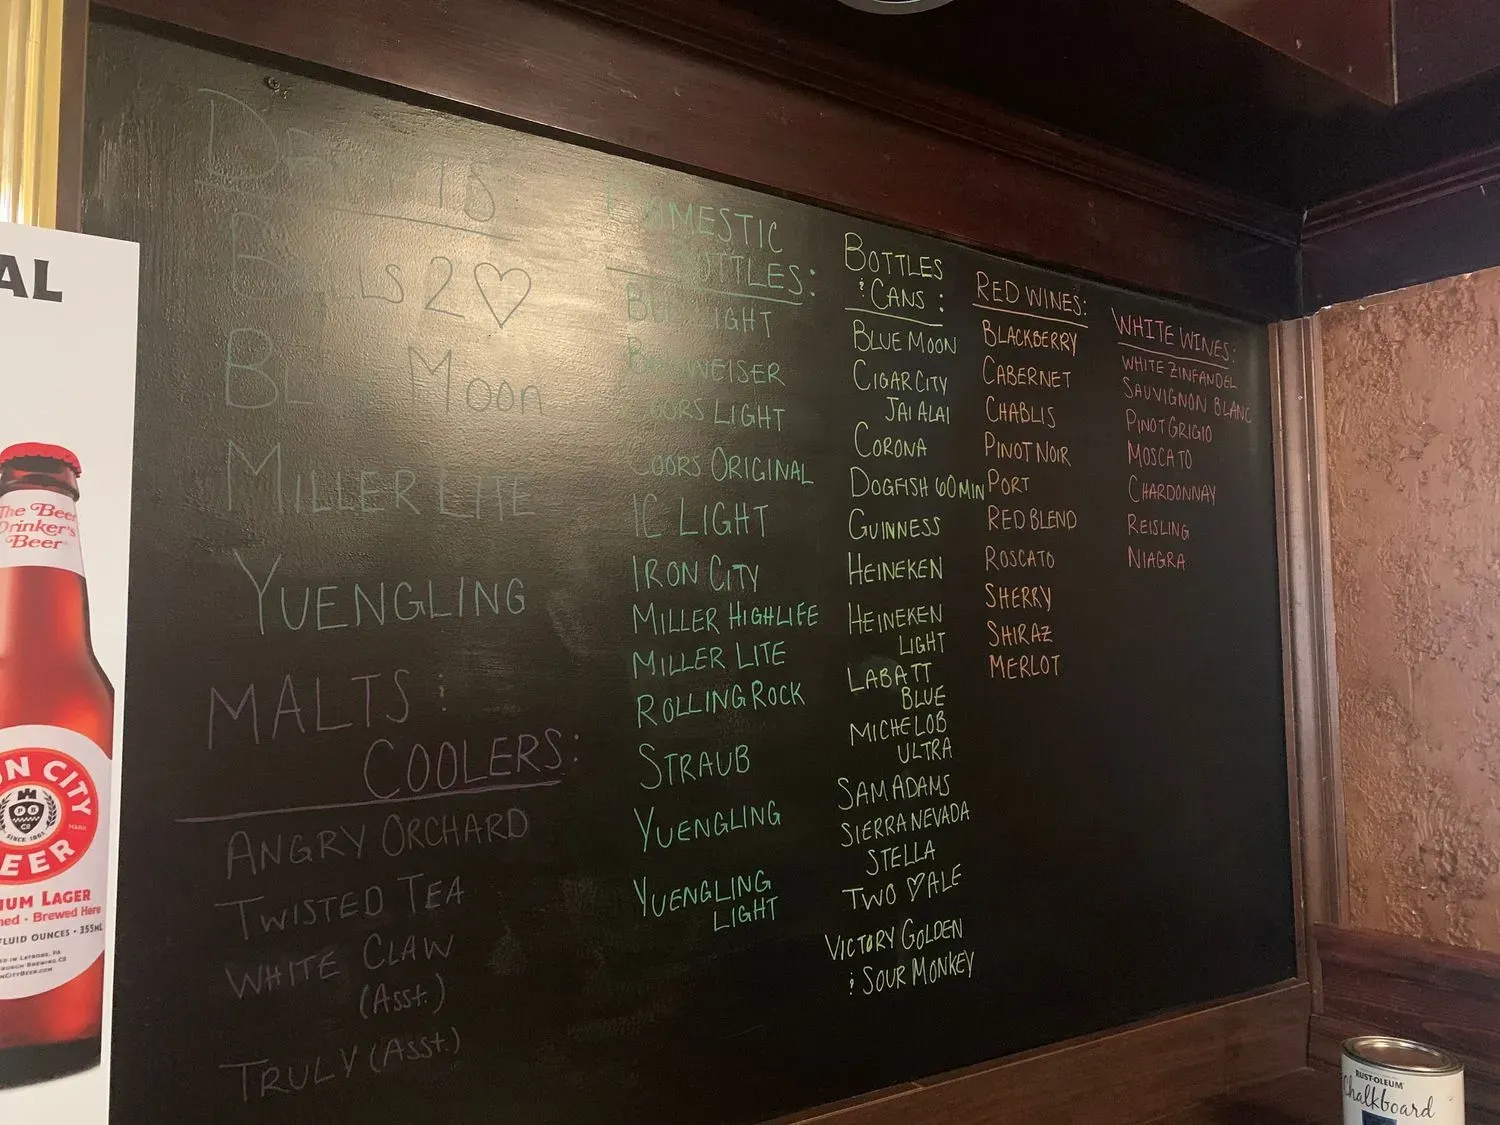 DRAFTS
BELLS 2♡
BLUE MOON
MILLER LITE
YUENGLING
MALTS :
COOLERS:
ANGRY ORCHARD
TWISTED TEA
WHITE CLAW
(Asst.)
TRULY (Asst.)
DOMESTIC
BOTTLES:
BUD LIGHT
BUDWEISER
COORS LIGHT
COORS ORIGINAL
IC LIGHT
IRON CITY
MILLER HIGHLIFE
MILLER LITE
ROLLING ROCK
STRAUB
YUENGLING
YUENGLING
LIGHT
BOTTLES
& CANS :
BLUE MOON
CIGAR CITY
JAI ALAI
CORONA
DOGFISH 60 MIN
GUINNESS
HEINEKEN
HEINEKEN
LIGHT
LABATT
BLUE
MICHELOB
ULTRA
SAM ADAMS
SIERRA NEVADA
STELLA
TWO ♡ ALE
VICTORY GOLDEN
& SOUR MONKEY
RED WINES:
BLACKBERRY
CABERNET
CHABLIS
PINOT NOIR
PORT
RED BLEND
ROSCATO
SHERRY
SHIRAZ
MERLOT
WHITE WINES:
WHITE ZINFANDEL
SAUVIGNON BLANC
PINOT GRIGIO
MOSCATO
CHARDONNAY
REISLING
NIAGRA
AL
The Beer
Drinker's
Beer
ON CITY
SINCE 1861
MARK
EER
IUM LAGER
ned • Brewed Here
FLUID OUNCES • 355mL
ED IN LATROBE, PA
BURGH BREWING CO
NCITYBEER.COM
RUST-OLEUM
Chalkboard